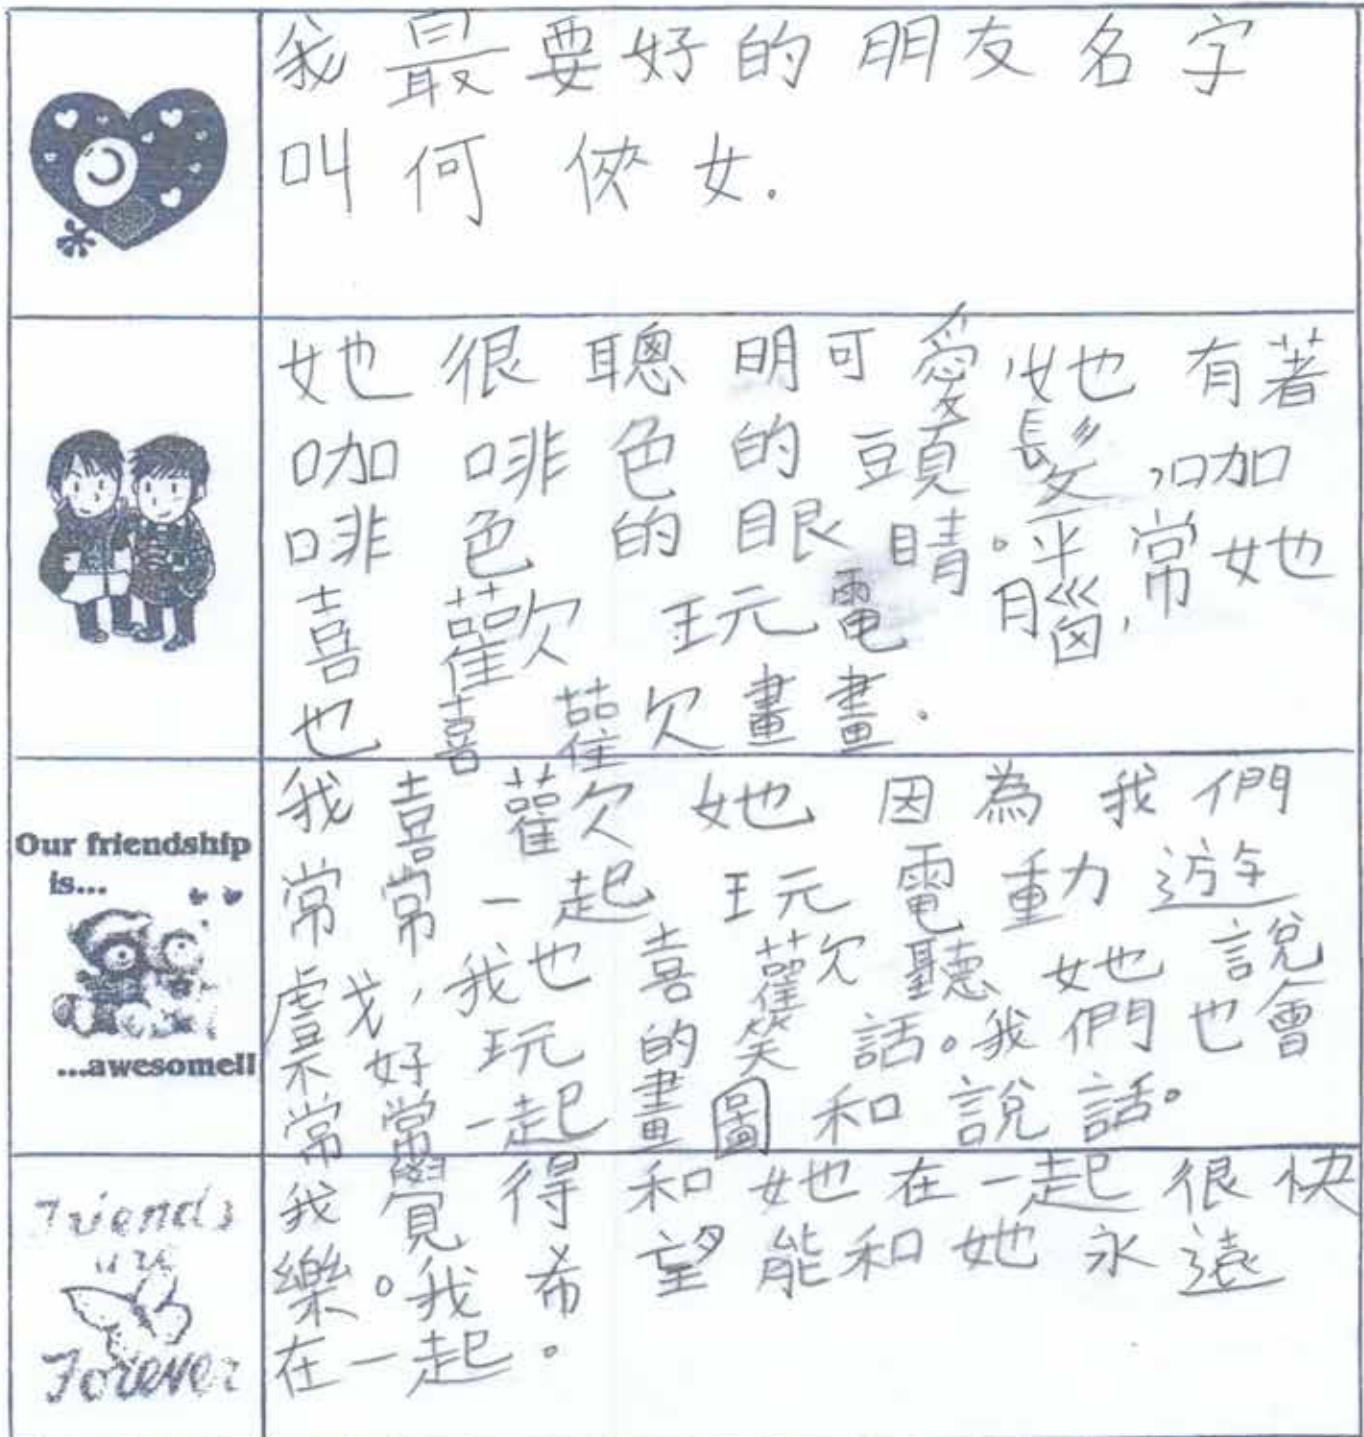 我最要好的朋友名字
叫何俠女.
她很聰明可愛,她有著
咖啡色的頭髮,咖
啡色的眼睛。平常她
喜歡玩電腦,
也喜歡畫畫.
Our friendship
is...
...awesome!!
我喜歡她因為我們
常常一起玩電動遊
戲,我也喜歡聽她說
好玩的笑話。我們也會
常常一起畫圖和說話。
Friends
are
Forever
我覺得和她在一起很快
樂。我希望能和她永遠
在一起。